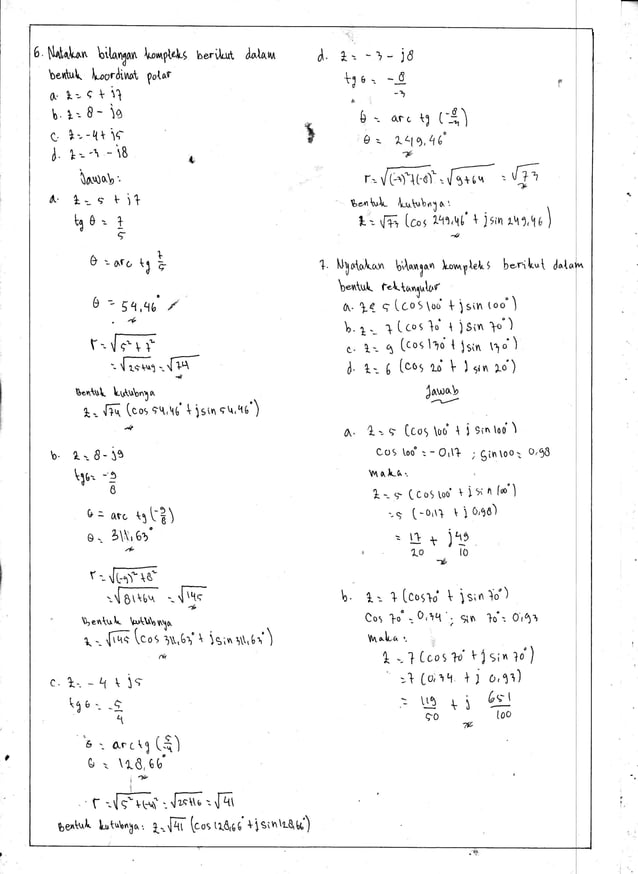 6. Natakan bilangan kompleks berikut dalam
bentuk koordinat polar
a. z = 5 + j7
b. z = 8 - j9
c. z = -4 + j5
d. z = -3 - j8
Jawab :
a. z = 5 + j7
tg θ = 7/5
θ = arc tg 7/5
θ = 54,46°
r = √5² + 7²
= √25+49 = √74
Bentuk kutubnya
z = √74 (cos 54,46° + j sin 54,46°)
b. z = 8 - j9
tg θ = -9/8
θ = arc tg (-9/8)
θ = 311,63°
r = √(-9)² + 8²
= √81+64 = √145
Bentuk kutubnya
z = √145 (cos 311,63° + j sin 311,63°)
c. z = -4 + j5
tg θ = -5/4
θ = arc tg (5/-4)
θ = 128,66°
r = √5² + (-4)² = √25+16 = √41
Bentuk kutubnya : z = √41 (cos 128,66° + j sin 128,66°)
d. z = -3 - j8
tg θ = -8/-3
θ = arc tg (-8/-3)
θ = 249,46°
r = √(-3)² + (-8)² = √9+64 = √73
Bentuk kutubnya :
z = √73 (cos 249,46° + j sin 249,46)
7. Nyatakan bilangan kompleks berikut dalam
bentuk rektangular
a. z = 5 (cos 100° + j sin 100°)
b. z = 7 (cos 70° + j sin 70°)
c. z = 9 (cos 130° + j sin 130°)
d. z = 6 (cos 20° + j sin 20°)
Jawab
a. z = 5 (cos 100° + j sin 100°)
cos 100° = -0,17 ; sin 100 = 0,98
maka :
z = 5 (cos 100° + j sin 100°)
= 5 (-0,17 + j 0,98)
= 17/20 + j 49/10
b. z = 7 (cos 70° + j sin 70°)
Cos 70° = 0,34 ; sin 70° = 0,93
maka :
z = 7 (cos 70° + j sin 70°)
= 7 (0,34 + j 0,93)
= 119/50 + j 651/100